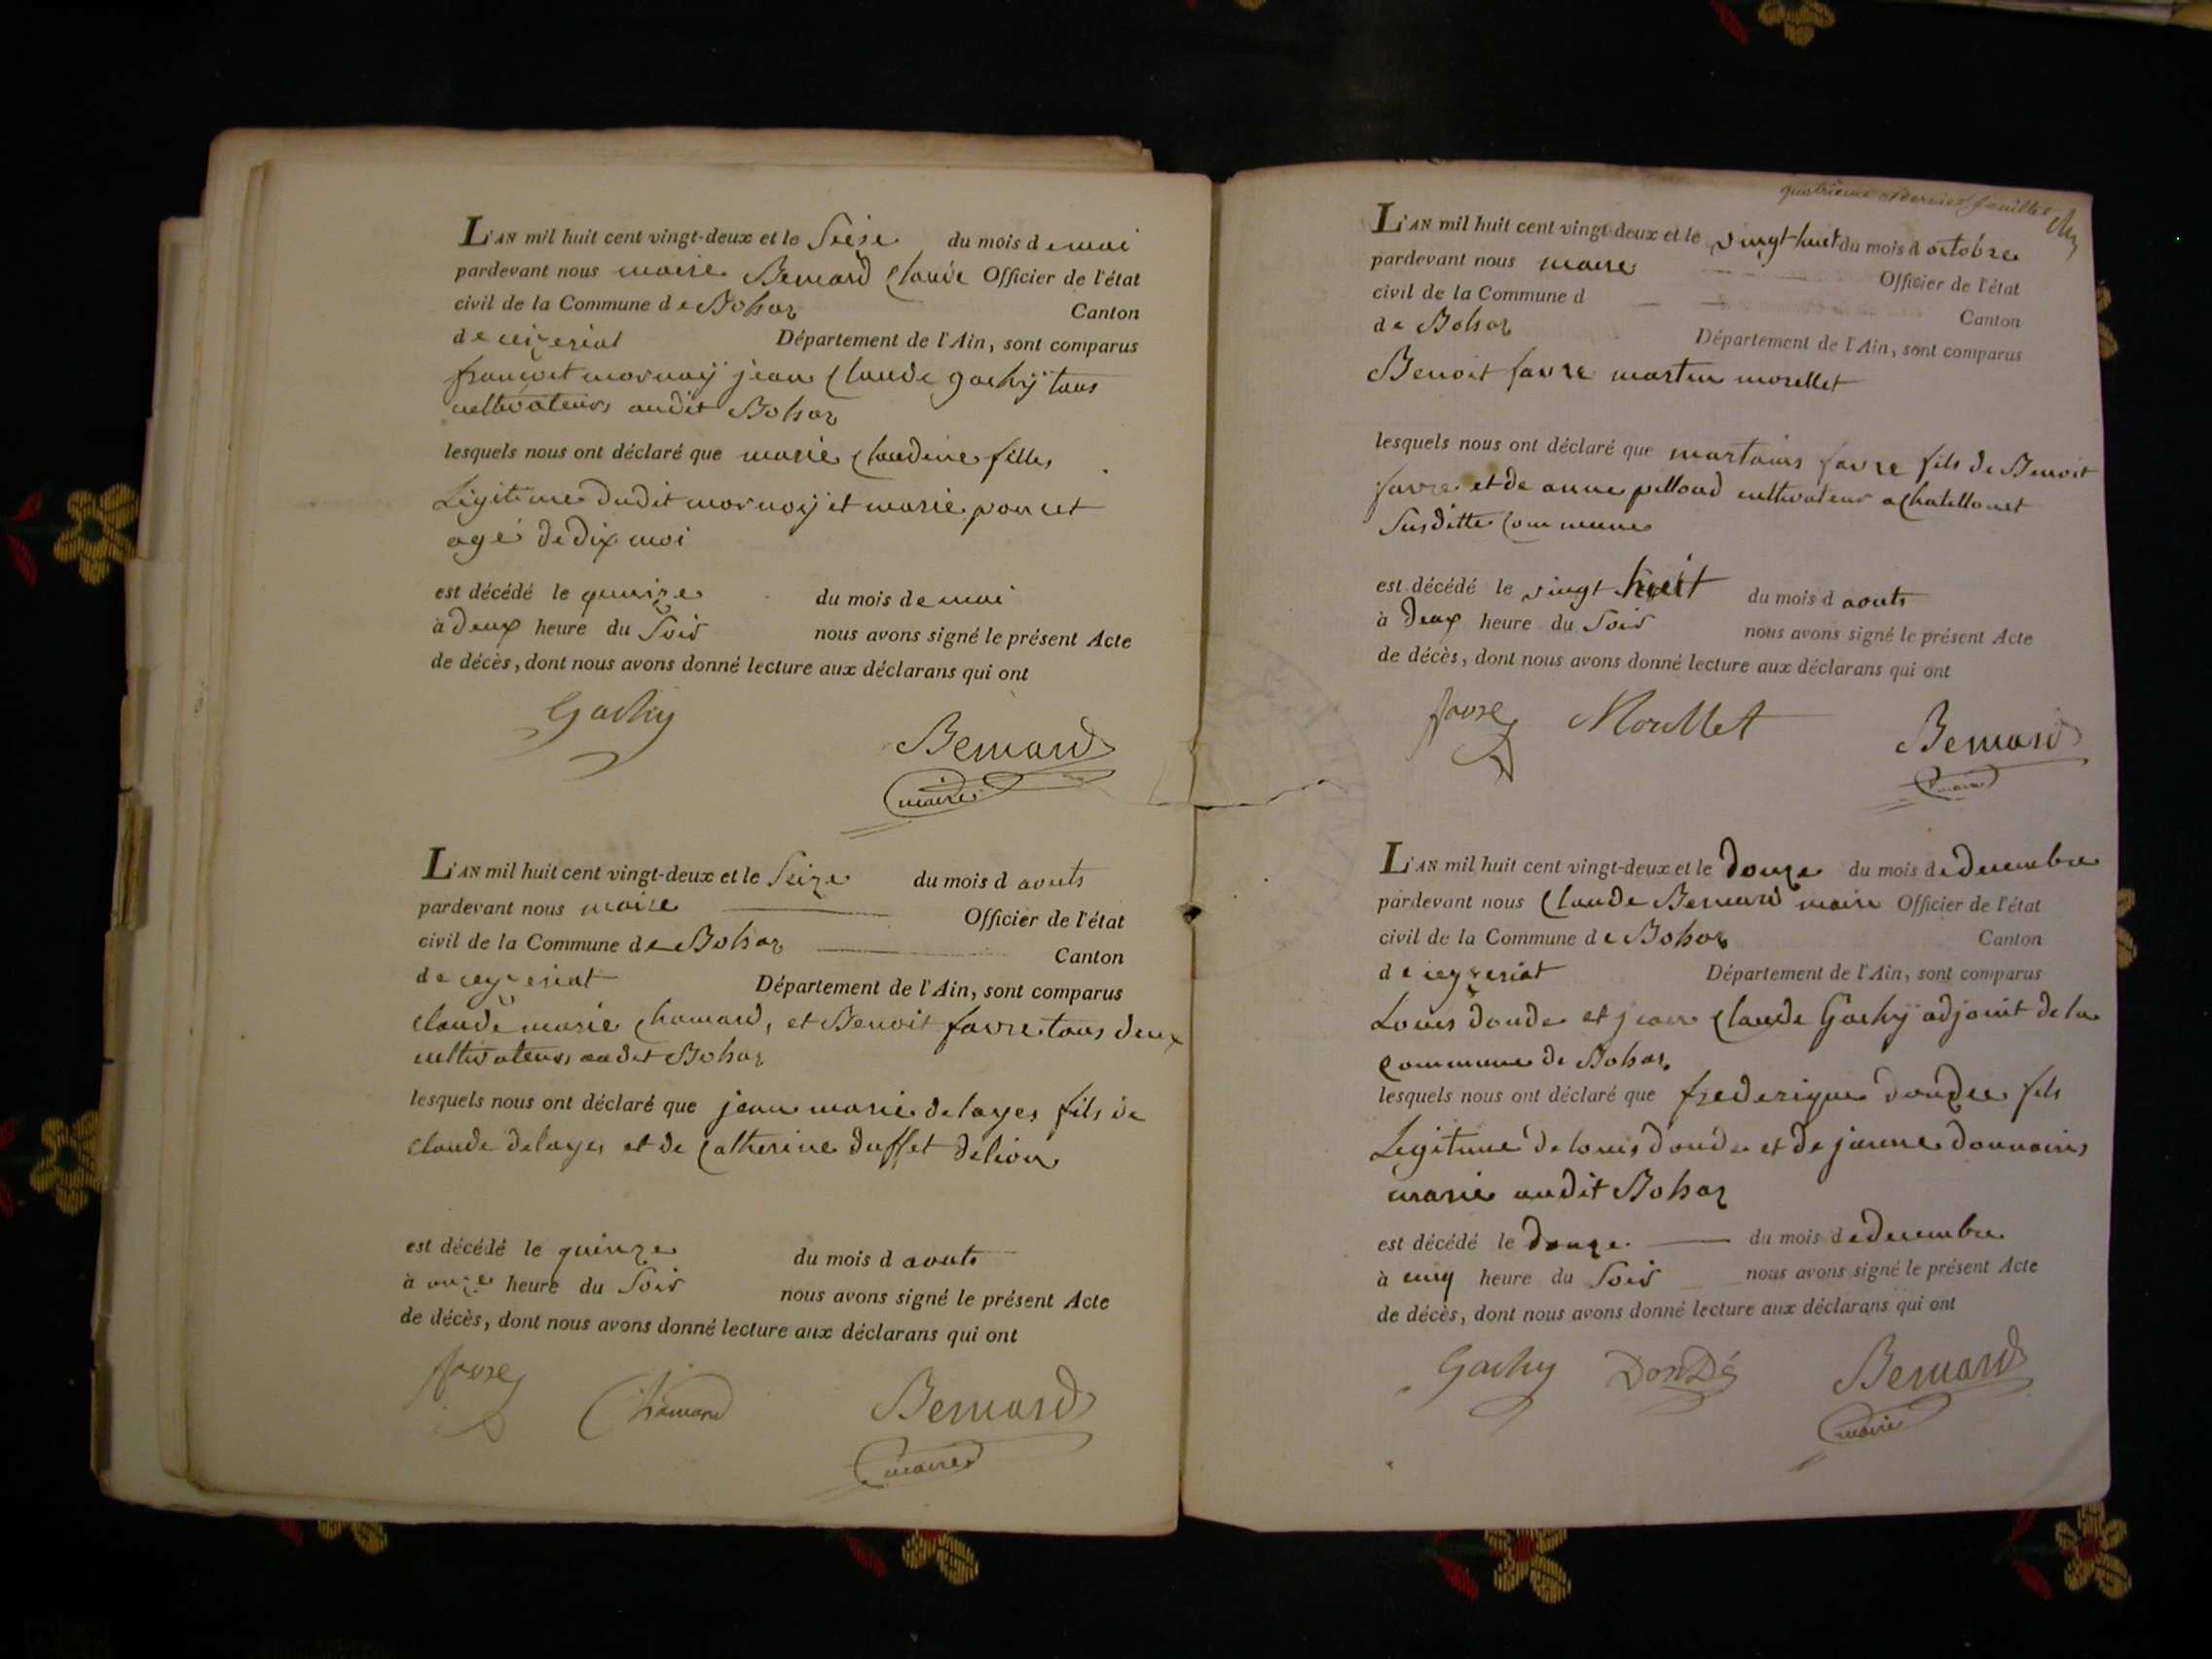 L'AN mil huit cent vingt-deux et le Seise du mois de mai
pardevant nous maire Bernard Claude Officier de l'état
civil de la Commune de Bohaz Canton
de ceizeriat Département de l'Ain, sont comparus
françoit mornaÿ jean Claude gachÿ tous
cultivateurs audit Bohaz
lesquels nous ont déclaré que marie Claudine filles
Legitime dudit mornaÿ et marie poncet
agé de dix moi
est décédé le quinze du mois de mai
à deux heure du Soir nous avons signé le présent Acte
de décès, dont nous avons donné lecture aux déclarans qui ont
Gachy
Bernard
maire
L'AN mil huit cent vingt-deux et le Seize du mois d aouts
pardevant nous maire Officier de l'état
civil de la Commune de Bohaz Canton
de ceyzeriat Département de l'Ain, sont comparus
claude marie Chamard, et Benoit favre tous deux
cultivateurs audit Bohaz
lesquels nous ont déclaré que jean marie delayes fils de
claude delayes et de Catherine duffet delion
est décédé le quinze du mois d aouts
à onze heure du Soir nous avons signé le présent Acte
de décès, dont nous avons donné lecture aux déclarans qui ont
favre Chamard Bernard
maire
quatrieme et dernier feuillet
L'AN mil huit cent vingt-deux et le vingt-huit du mois d octobre
pardevant nous maire Officier de l'état
civil de la Commune d Canton
de Bohaz Département de l'Ain, sont comparus
Benoit favre martin morellet
lesquels nous ont déclaré que martains favre fils de Benoit
favre et de anne pilloud cultivateur a Chatillonet
Susditte Commune
est décédé le vingt huit du mois d aouts
à deux heure du Soir nous avons signé le présent Acte
de décès, dont nous avons donné lecture aux déclarans qui ont
favre Morellet Bernard
maire
L'AN mil huit cent vingt-deux et le douze du mois de decembre
pardevant nous Claude Bernard maire Officier de l'état
civil de la Commune de Bohaz Canton
de ceyzeriat Département de l'Ain, sont comparus
Louis donde et jean Claude Gachÿ adjoint de la
Commune de Bohas
lesquels nous ont déclaré que frederique dondee fils
Legitime de louis donde et de jeanne donnains
marie audit Bohaz
est décédé le douze du mois de decembre
à cinq heure du Soir nous avons signé le présent Acte
de décès, dont nous avons donné lecture aux déclarans qui ont
Gachy DonDé Bernard
maire